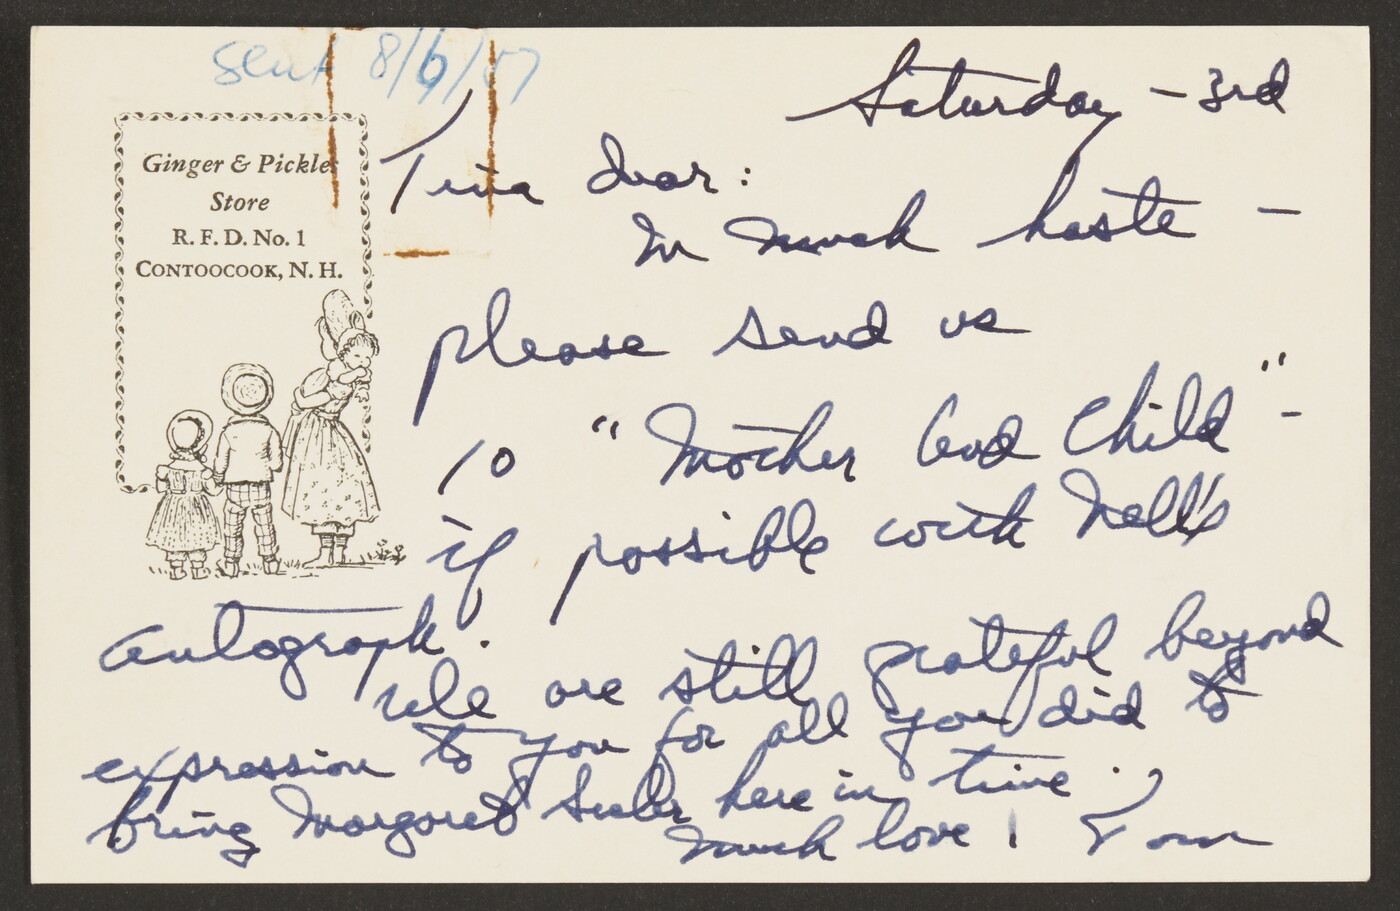 sent 8/6/57
Saturday - 3rd
Ginger & Pickles
Store
R. F. D. No. 1
CONTOOCOOK, N. H.
Tina dear:
In much haste -
please send us
10 "Mother and Child" -
if possible with Nell's
autograph.
We are still grateful beyond
expression to you for all you did to
bring Margaret here in time.
Much love! Tom